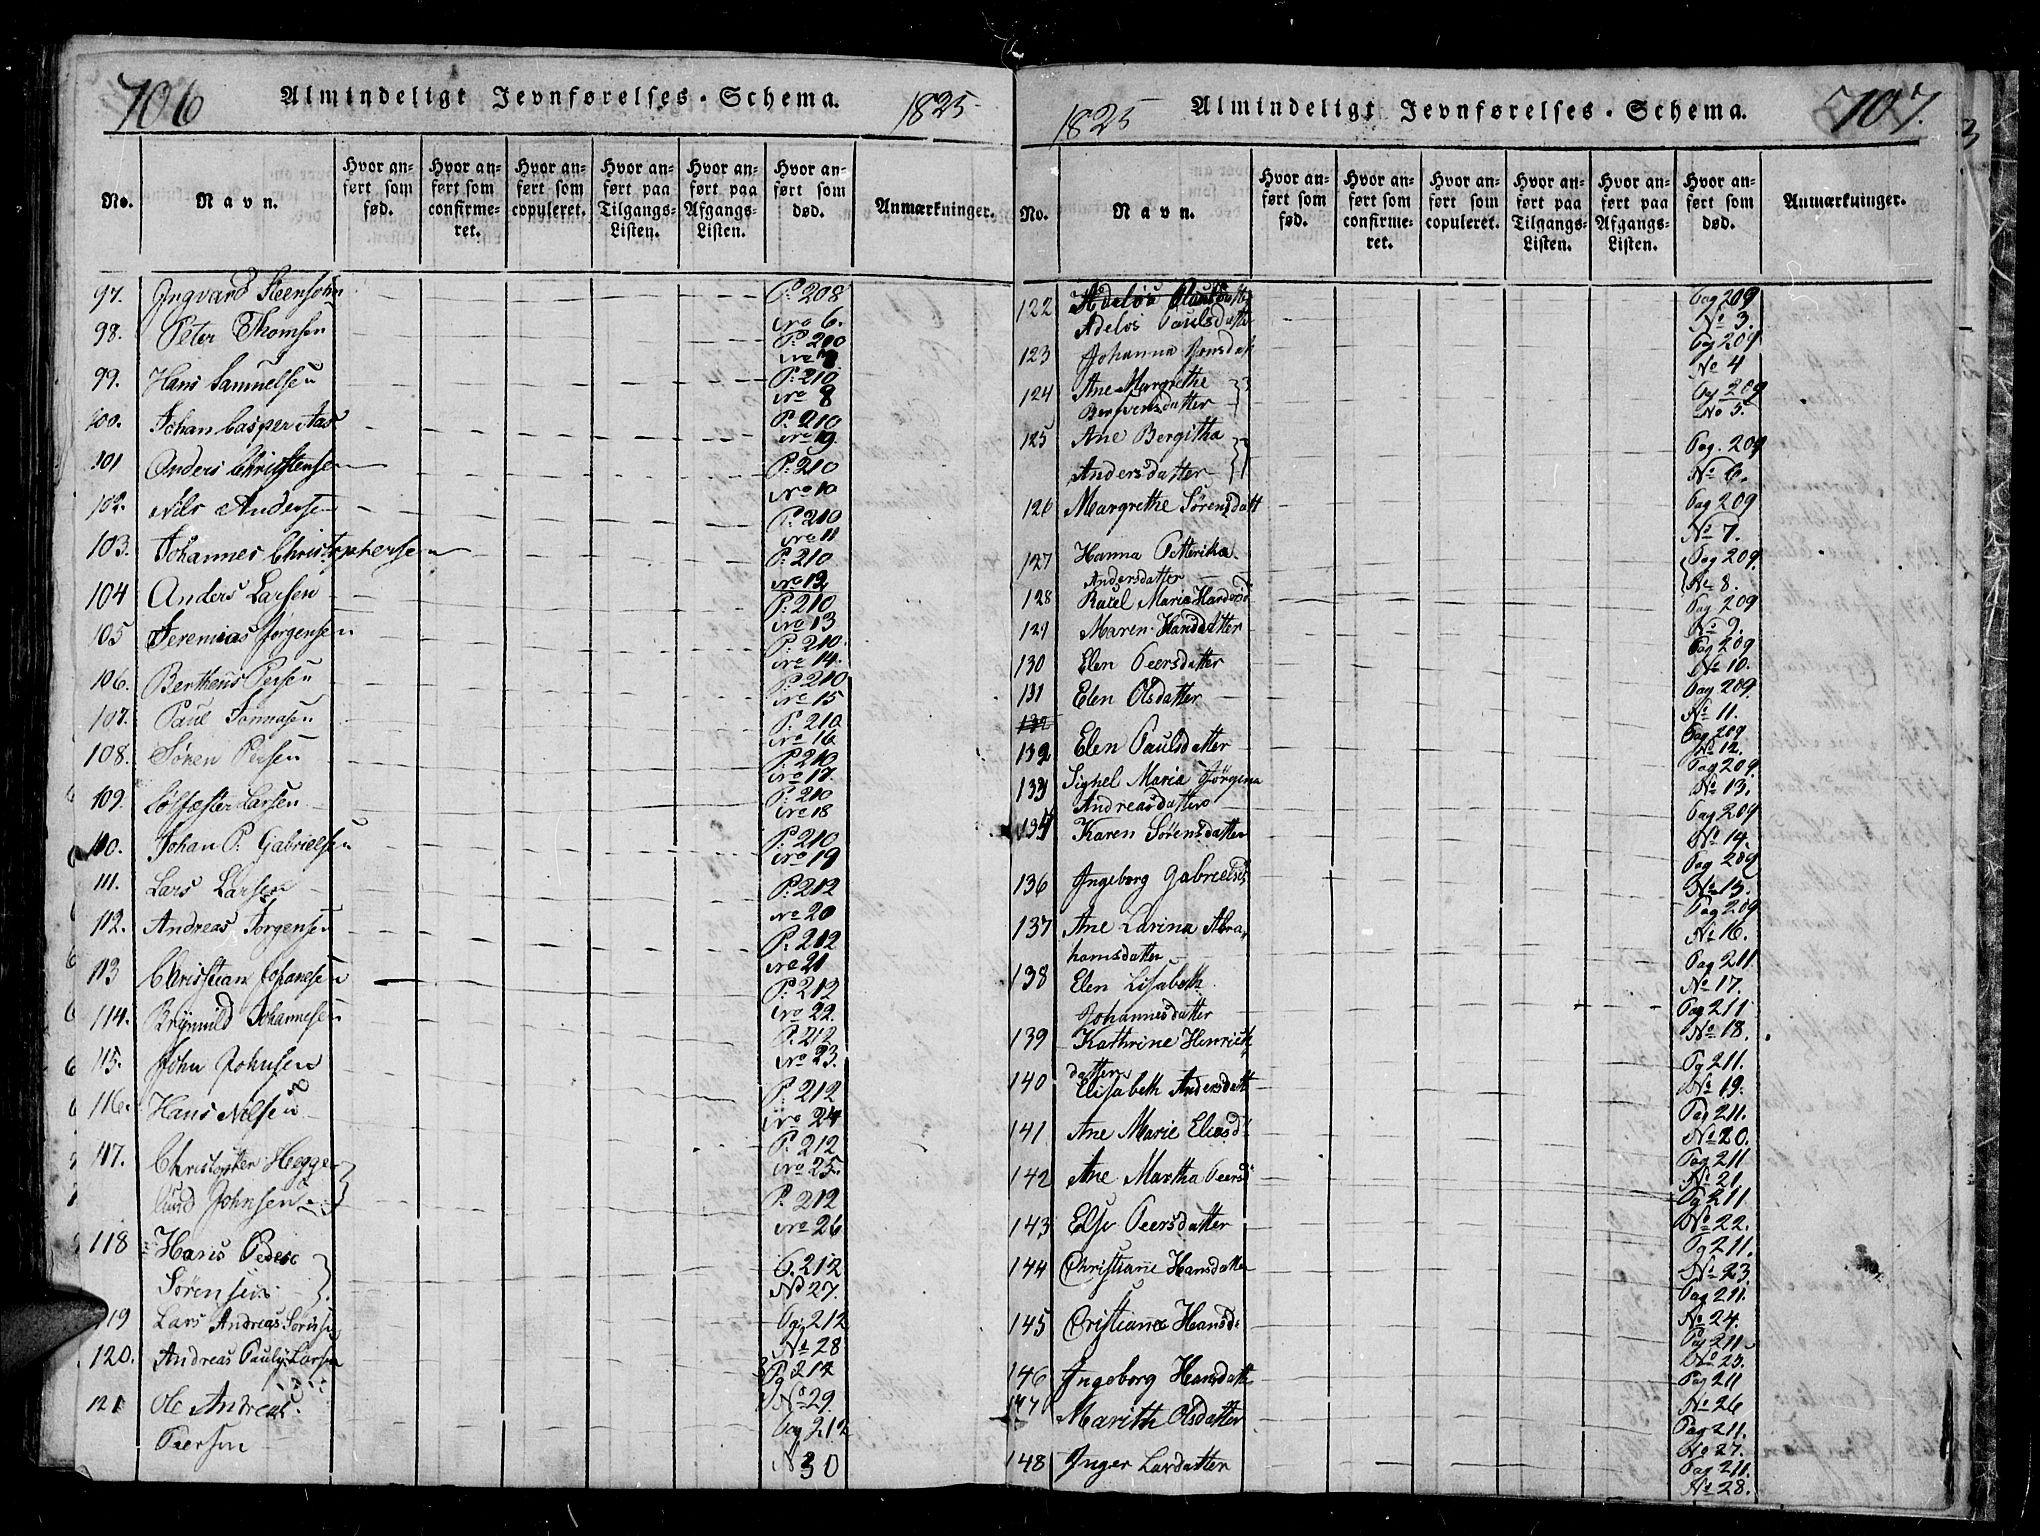 706 Almindeligt Jevnførelses-Schema. 1825
No. Navn. Hvor anført som fød. Hvor anført som confirmeret. Hvor anført som copuleret. Hvor anført paa Tilgangs-Listen. Hvor anført paa Afgangs-Listen. Hvor anført som død. Anmærkninger.
97. Ingvard Steensohn P. 208
No 6.
98. Peter Thomsen P. 210
No 7.
99. Hans Samuelsen P. 210
No 8
100. Johan Casper P. 210
No 9.
101 Anders Christensen P. 210
No 10
102. Nils Andersen P. 210
No 11
103. Johannes Christophersen P. 210
No 12
104 Anders Larsen P. 210
No 13
105 Jeremias Jørgensen P. 210.
No 14.
106. Berthens Persen P. 210
No 15
107. Paul Tonnasen P. 210.
No 16
108. Søren Persen P. 210
No 17.
109. Larsen P. 210
No 18
110. Johan P. Gabrielsen P. 210
No 19
111. Lars Larsen P. 212
No 20
112. Andreas Jørgensen P. 212
No 21
113 Christian Johansen P. 212
No 22.
114. Brynnild Johannesen P. 212
No 23.
115. John Johnsen P. 212
No 24
116. Hans Nilsen P. 212
No 25.
117. Christopher Hegge-
lund Johnsen P. 212
No 26
118 Hans Peder P. 212
Sørensen No 27.
119 Lars Andreas Pg 212
No 28
120. Andreas Larsen Pg 212
No 29.
121 Ole Andreas Pag 212
Peersen No 30
1825 Almindeligt Jevnførelses-Schema. 707.
No. Navn. Hvor anført som fød. Hvor anført som confirmeret. Hvor anført som copuleret. Hvor anført paa Tilgangs-Listen. Hvor anført paa Afgangs-Listen. Hvor anført som død. Anmærkninger.
122 Adelos Paulsdatter Pag 209
Adelos Paulsdatter No 3.
123 Johanna Jensdat Pag 209
No 4
124 Ane Margrethe Pag 209
No 5.
125 Ane Bergitha Pag. 209
Andersdatter No 6.
126 Margrethe Sørensdatt Pag 209
No 7.
127 Hanna Petterika Pag 209.
Andersdatter No 8.
128 Rakel Maria Pag 209
No 9.
129 Maren Hansdatter Pag 209
No 10.
130 Elen Peersdatter Pag 209.
131 Elen Olsdatter No 11.
132
132 Elen Paulsdatter Pag 209
No 12.
133 Sighel Maria Jørgina Pag 209
Andreasdatter No 13.
134 Karen Sørensdatter Pag 209
No 14.
136 Ingeborg Gabrielsd Pag 209
No 15.
137 Ane Larina Abra- Pag 209
hamsdatter No 16.
138 Elen Lisabeth Pag 211.
Johannesdatter No 17.
139 Kathrine Henrich Pag 211
datter No 18.
140 Elisabeth Andersdatt Pg 211.
No 19.
141 Ane Marie Eliasd Pag 211.
No 20.
142 Ane Martha Peersd Pag 211
No 21.
143 Else Peersdatter Pg 211.
No 22.
144 Christiane Hansdatter Pg 211.
No 23.
145 Cristiane Hansd. Pag 211.
No 24.
146 Ingeborg Hansdatt Pag 211
No 25.
147 Marith Olsdatter Pag 211
No 26
148 Inger Larsdatter Pag 211.
No 27.
Pag 211.
No 28.